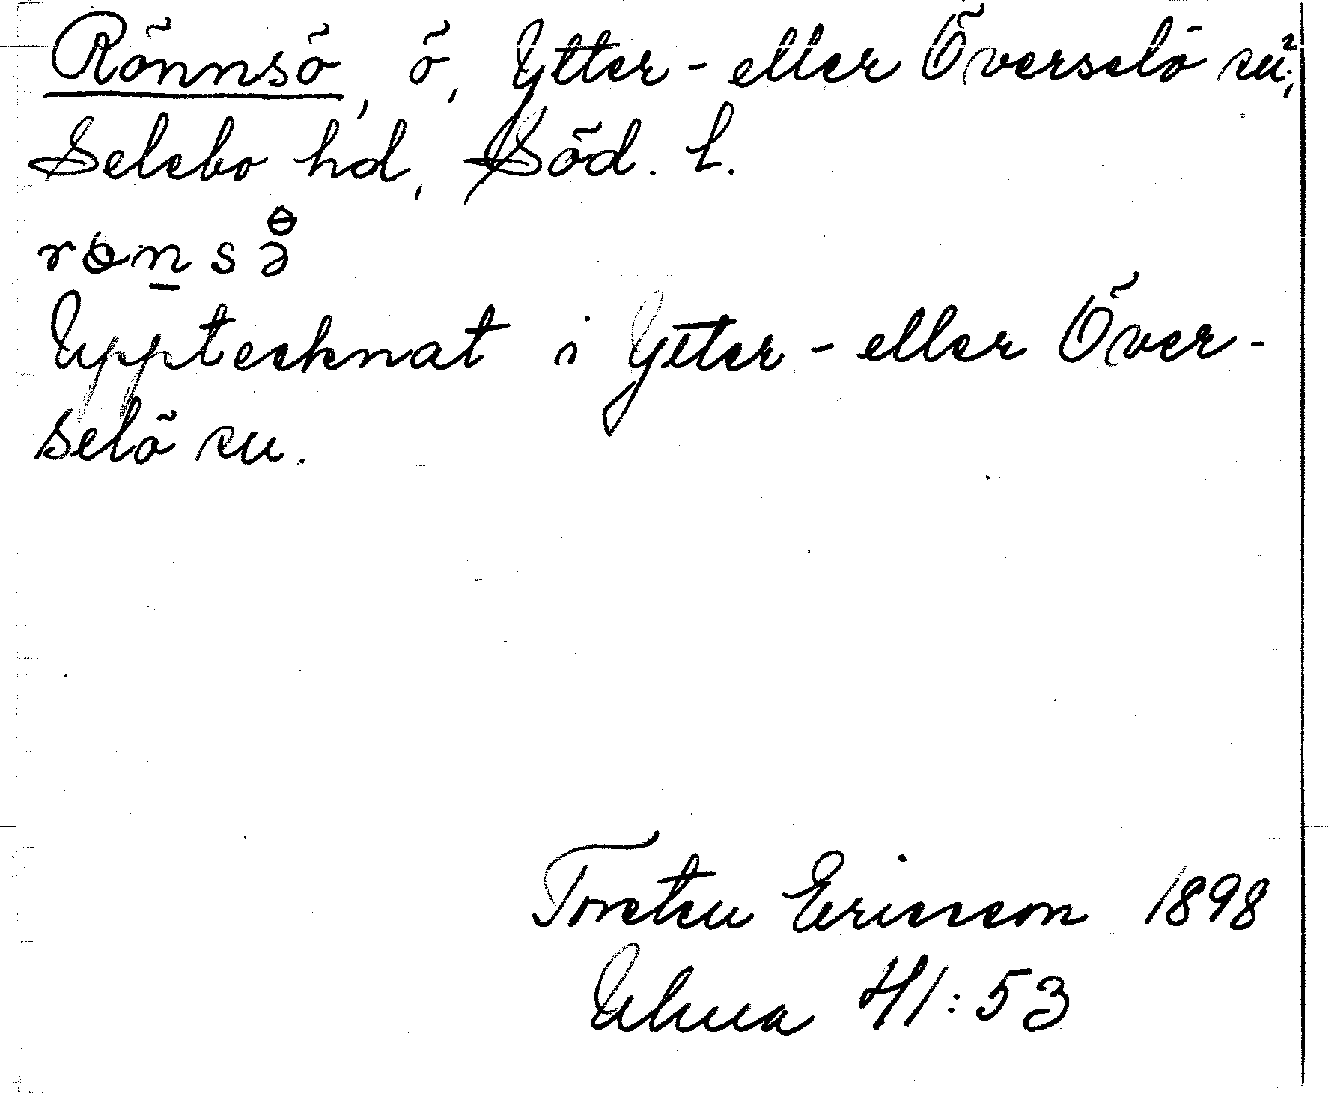 Rönnsö, ö, Ytter- eller Överselö sn?,
Selebo hd, Söd. l.
rɵnsə̊
Upptecknat i Ytter- eller Över-
selö sn.
Torsten Ericsson 1898
Uhua 41:53